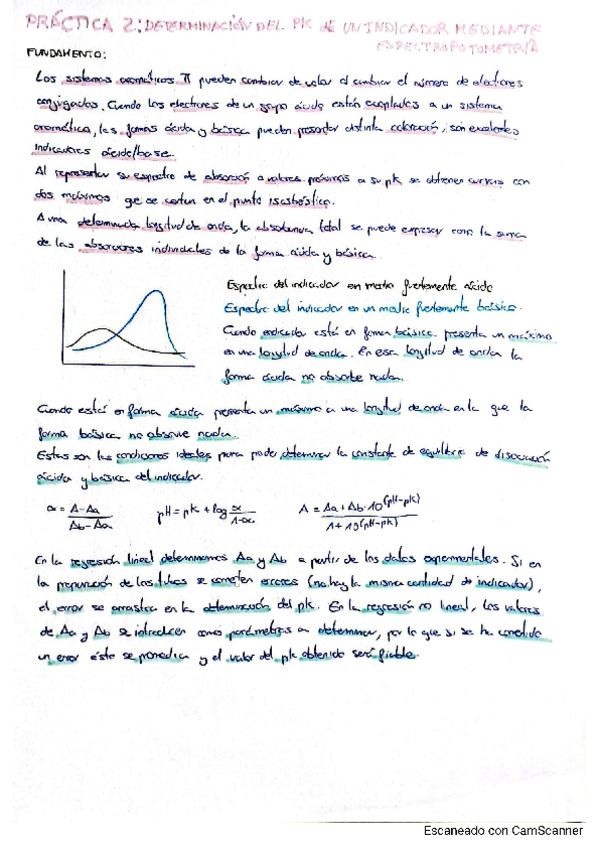 PRÁCTICA 2: DETERMINACIÓN DEL PK DE UN INDICADOR MEDIANTE
ESPECTROFOTOMETRÍA
FUNDAMENTO:
Los sistemas aromáticos π pueden cambiar de valor al cambiar el número de electrones
conjugados. Cuando los electrones de un grupo ácido están acoplados a un sistema
aromático, las formas ácida y básica pueden presentar distinta coloración, son excelentes
indicadores ácido/base.
Al representar su espectro de absorción a valores próximos a su pK se obtienen curvas con
dos máximos que se cortan en el punto isosbéstico.
A una determinada longitud de onda, la absorbancia total se puede expresar como la suma
de las absorciones individuales de la forma ácida y básica.
Espectro del indicador en medio fuertemente ácido
Espectro del indicador en un medio fuertemente básico.
Cuando indicador está en forma básica presenta un máximo
en una longitud de onda. En esa longitud de onda la
forma ácida no absorbe nada.
Cuando está en forma ácida presenta un máximo a una longitud de onda en la que la
forma básica no absorve nada.
Estas son las condiciones ideales para poder determinar la constante de equilibrio de disociación
ácida y básica del indicador.
α = A-Aa / Ab-Aa    pH = pK + log α / 1-α    A = Aa + Ab·10^(pH-pK) / 1+10^(pH-pK)
En la regresión lineal determinamos Aa y Ab a partir de los datos experimentales. Si en
la preparación de los tubos se cometen errores (no hay la misma cantidad de indicador),
el error se arrastra en la determinación del pK. En la regresión no lineal, los valores
de Aa y Ab se introducen como parámetros a determinar, por lo que si se ha cometido
un error éste se promedia y el valor del pK obtenido será fiable.
Escaneado con CamScanner